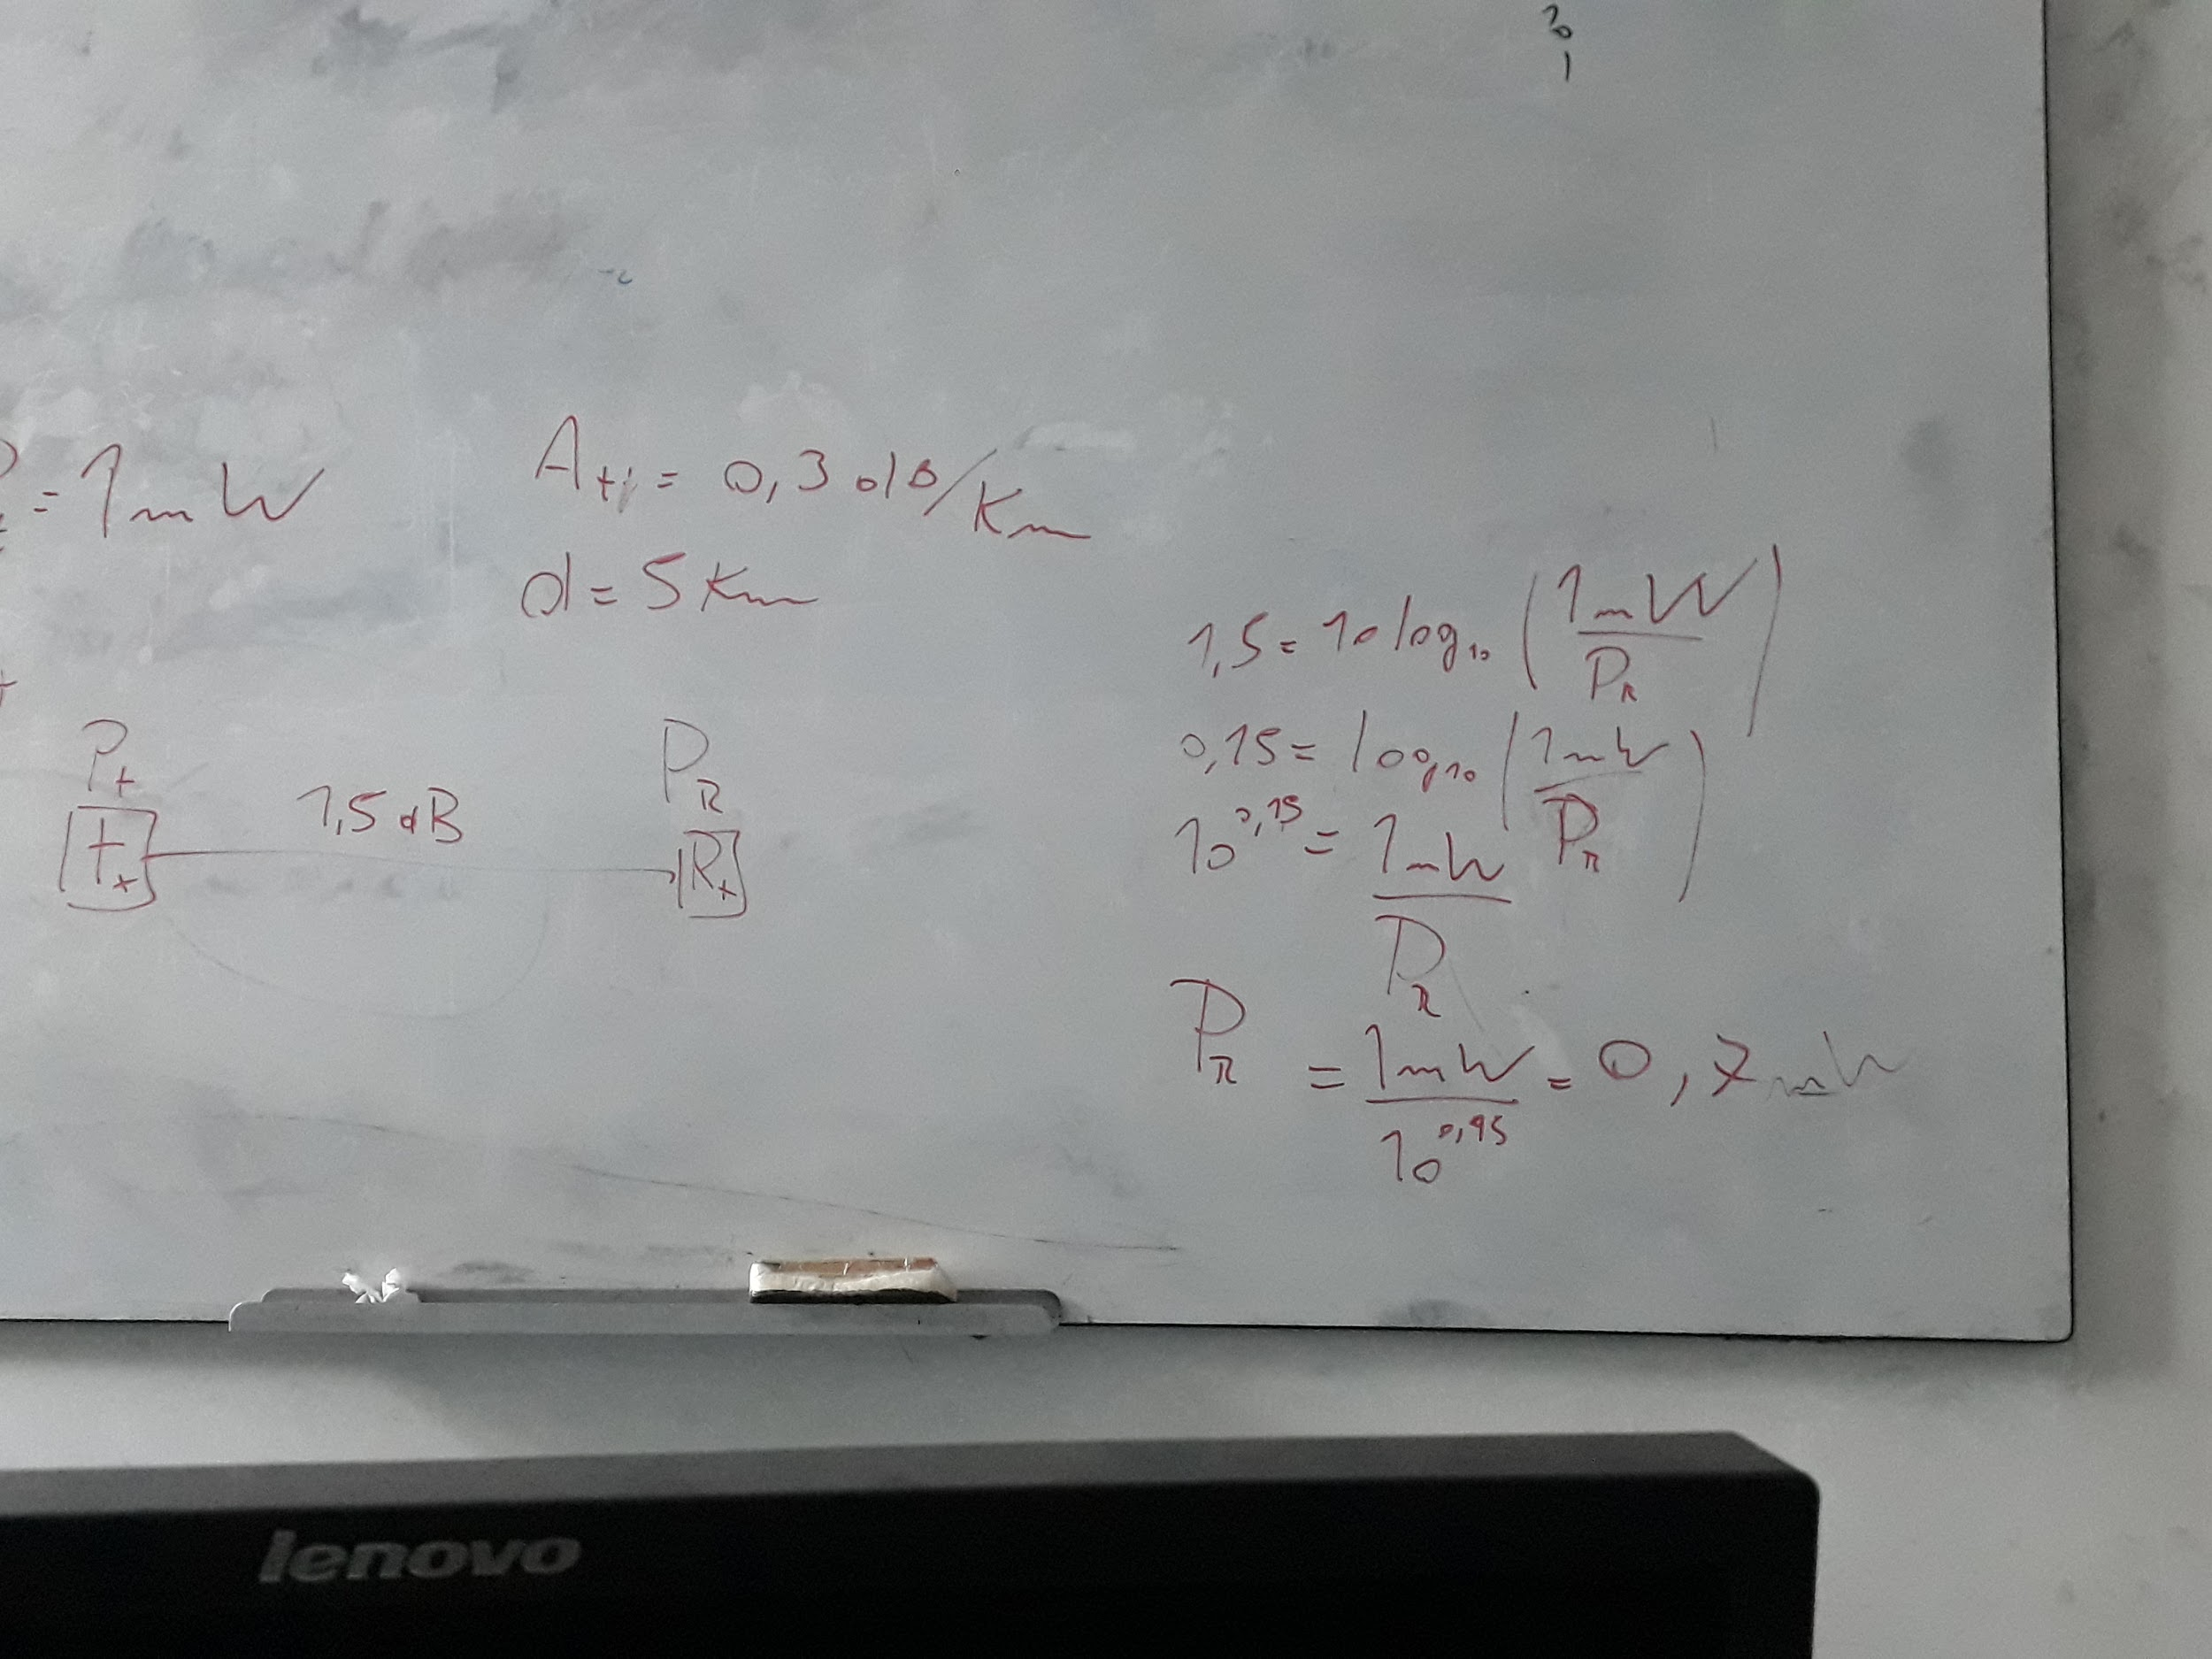 2
0
1
= 1mW
Att = 0,3 dB/Km
d = 5 Km
Pt
Tx
1,5 dB
PR
Rx
1,5 = 10 log10 (1mW/PR)
0,15 = log10 (1mW/PR)
10^0,15 = 1mW/PR
PR = 1mW/10^0,15 = 0,7 mW
lenovo